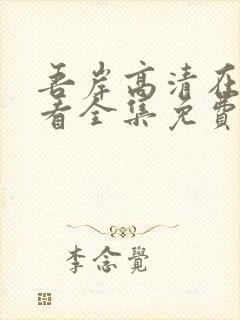 吾岸高清在
看全集免費
李念覺